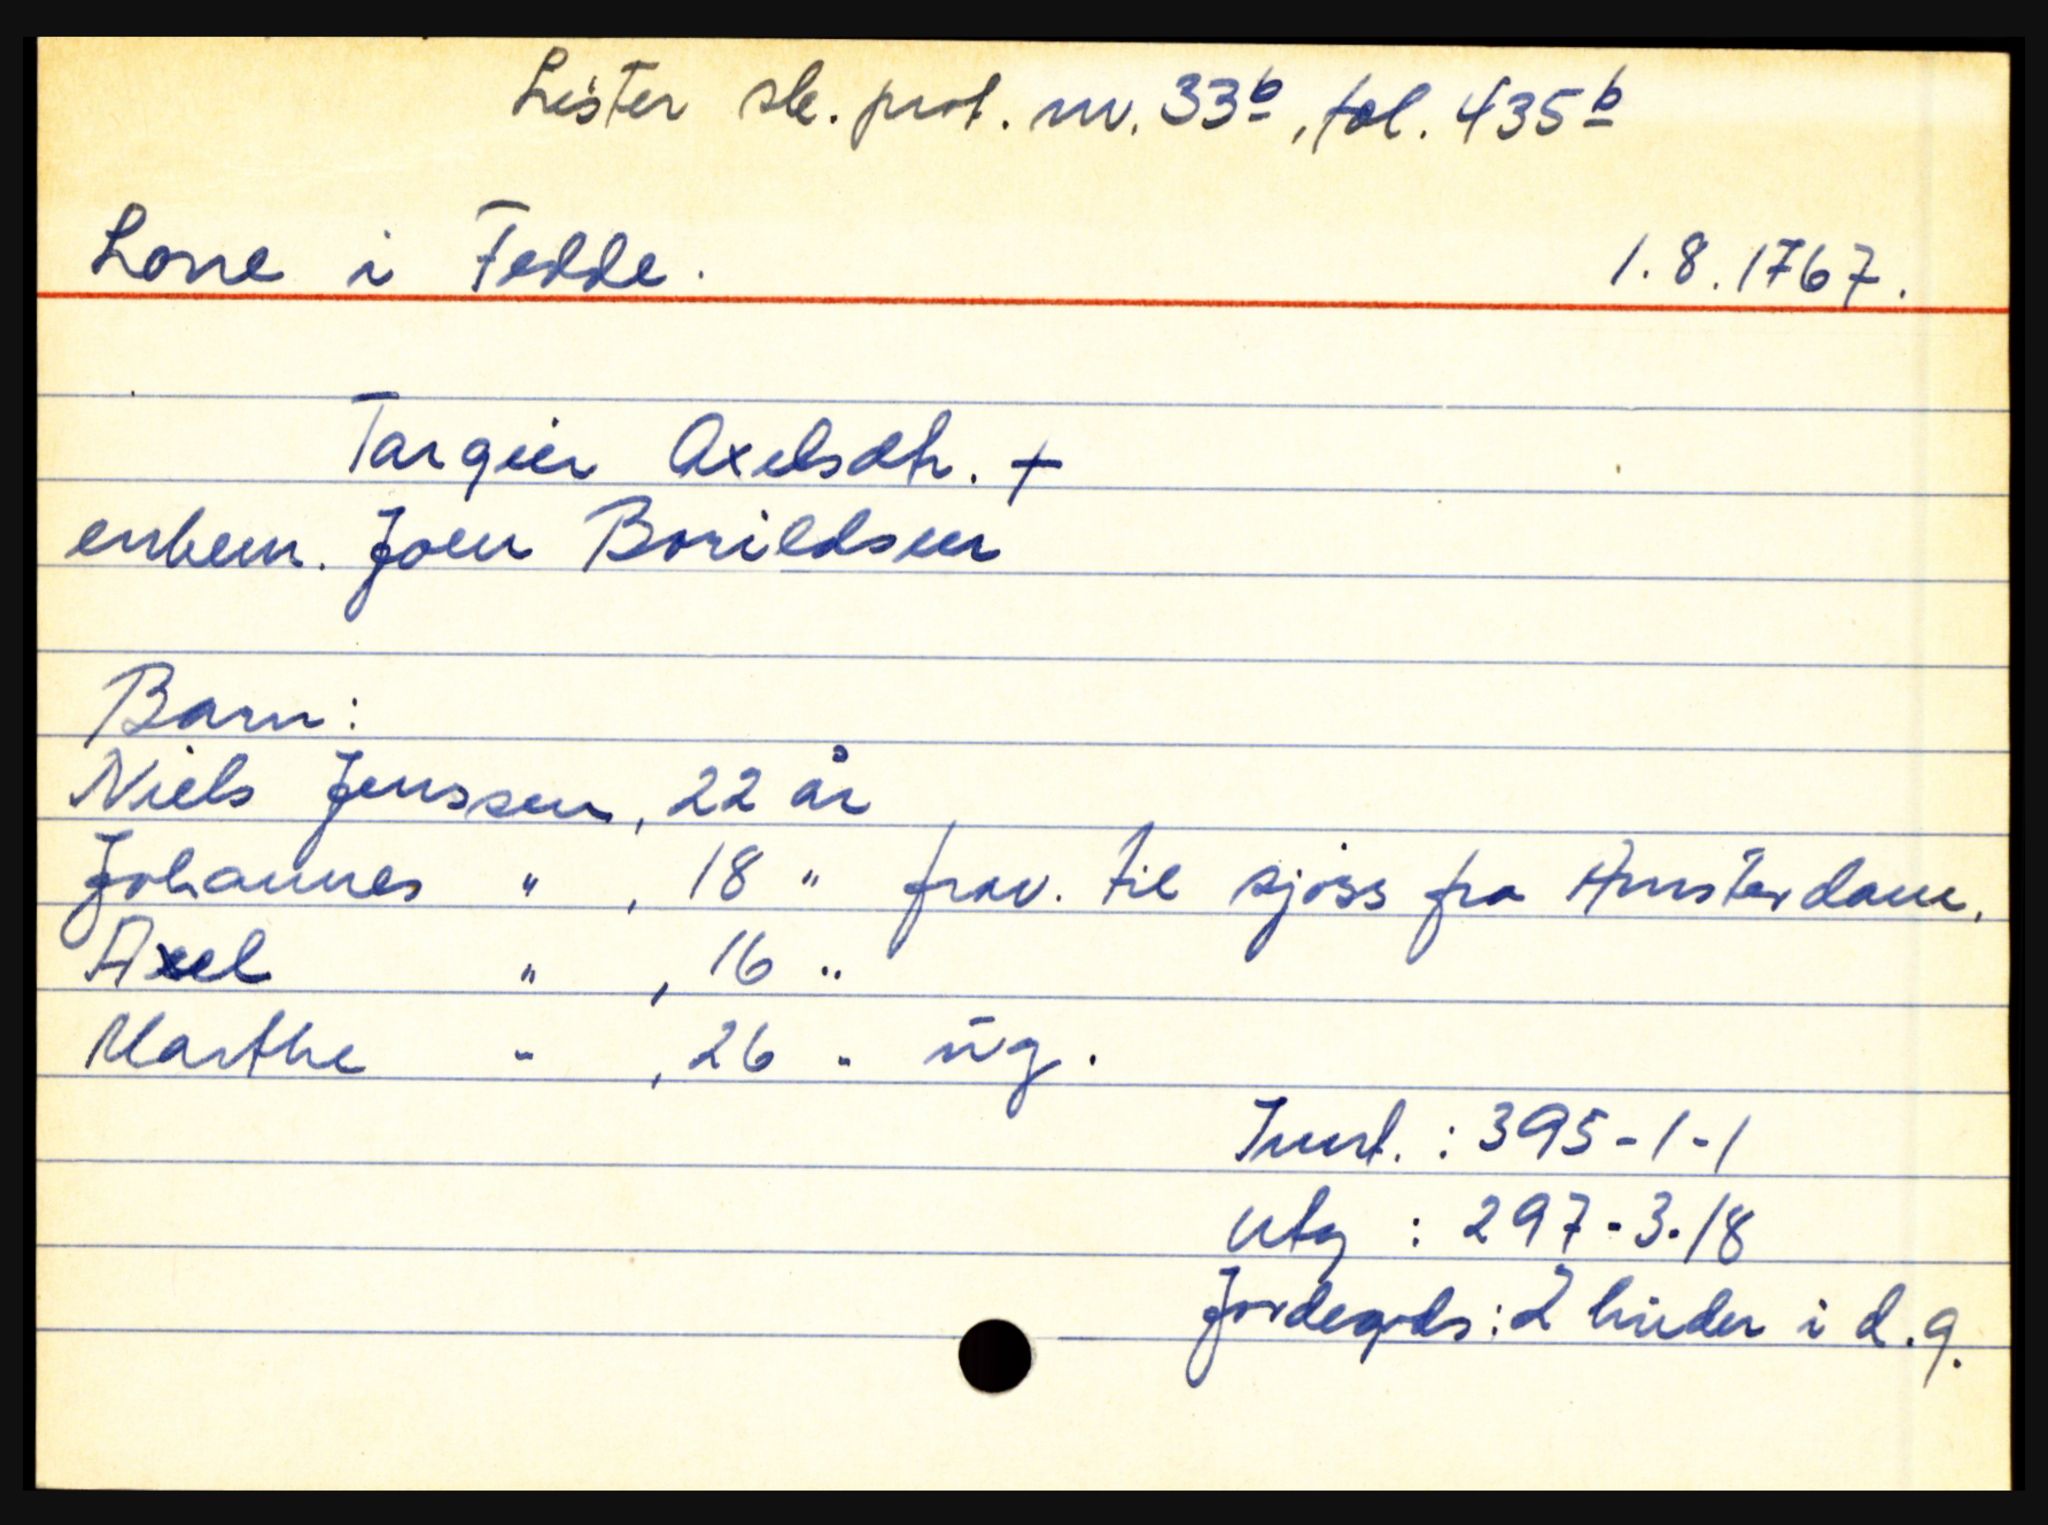 Lister sk. prot. nr. 33b, fol. 435b
Lone i Fedde. 1.8.1767.
Targier Axelsdtr. +
enkem. Joen Borildsen
Barn:
Niels Jenssen, 22 år
Johannes " , 18 " frav. til sjöss fra Amsterdam.
Axel " , 16 "
Marthe " , 26 " ug.
Innt. : 395-1-1
Utg : 297-3-18
Jordegods: 2 huder i d.g.